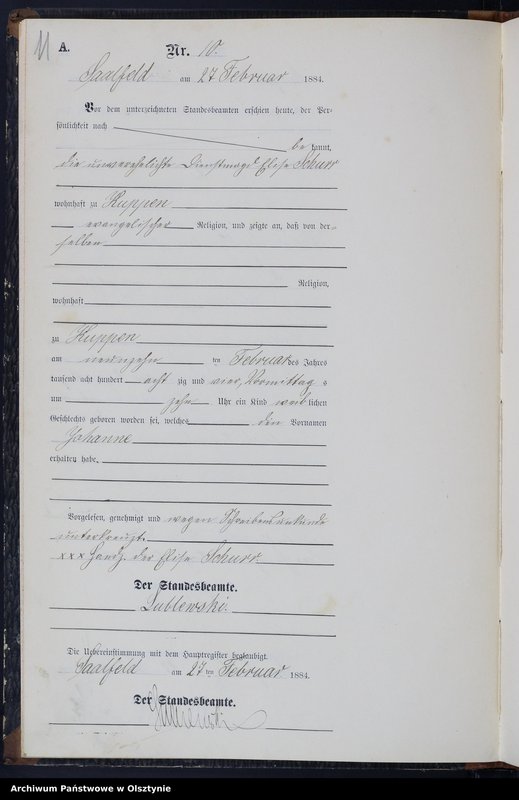 11
A.
Nr. 10.
Saalfeld am 27 Februar 1884.
Vor dem unterzeichneten Standesbeamten erschien heute, der Per-
sönlichkeit nach
be kannt,
die unverehelichte Dienstmagd Elise Schurr
wohnhaft zu Kuppen
evangelischer Religion, und zeigte an, daß von der-
selben
Religion,
wohnhaft
zu Kuppen
am neunzehn ten Februar des Jahres
tausend acht hundert acht zig und vier, Vormittag s
um zehn Uhr ein Kind weib lichen
Geschlechts geboren worden sei, welches den Vornamen
Johanne
erhalten habe.
Vorgelesen, genehmigt und wegen Schreibensunkunde
unterkreuzt.
xxx Handz. der Elise Schurr.
Der Standesbeamte.
Lublewski.
Die Uebereinstimmung mit dem Hauptregister beglaubigt.
Saalfeld am 27 ten Februar 1884.
Der Standesbeamte.
Archiwum Państwowe w Olsztynie